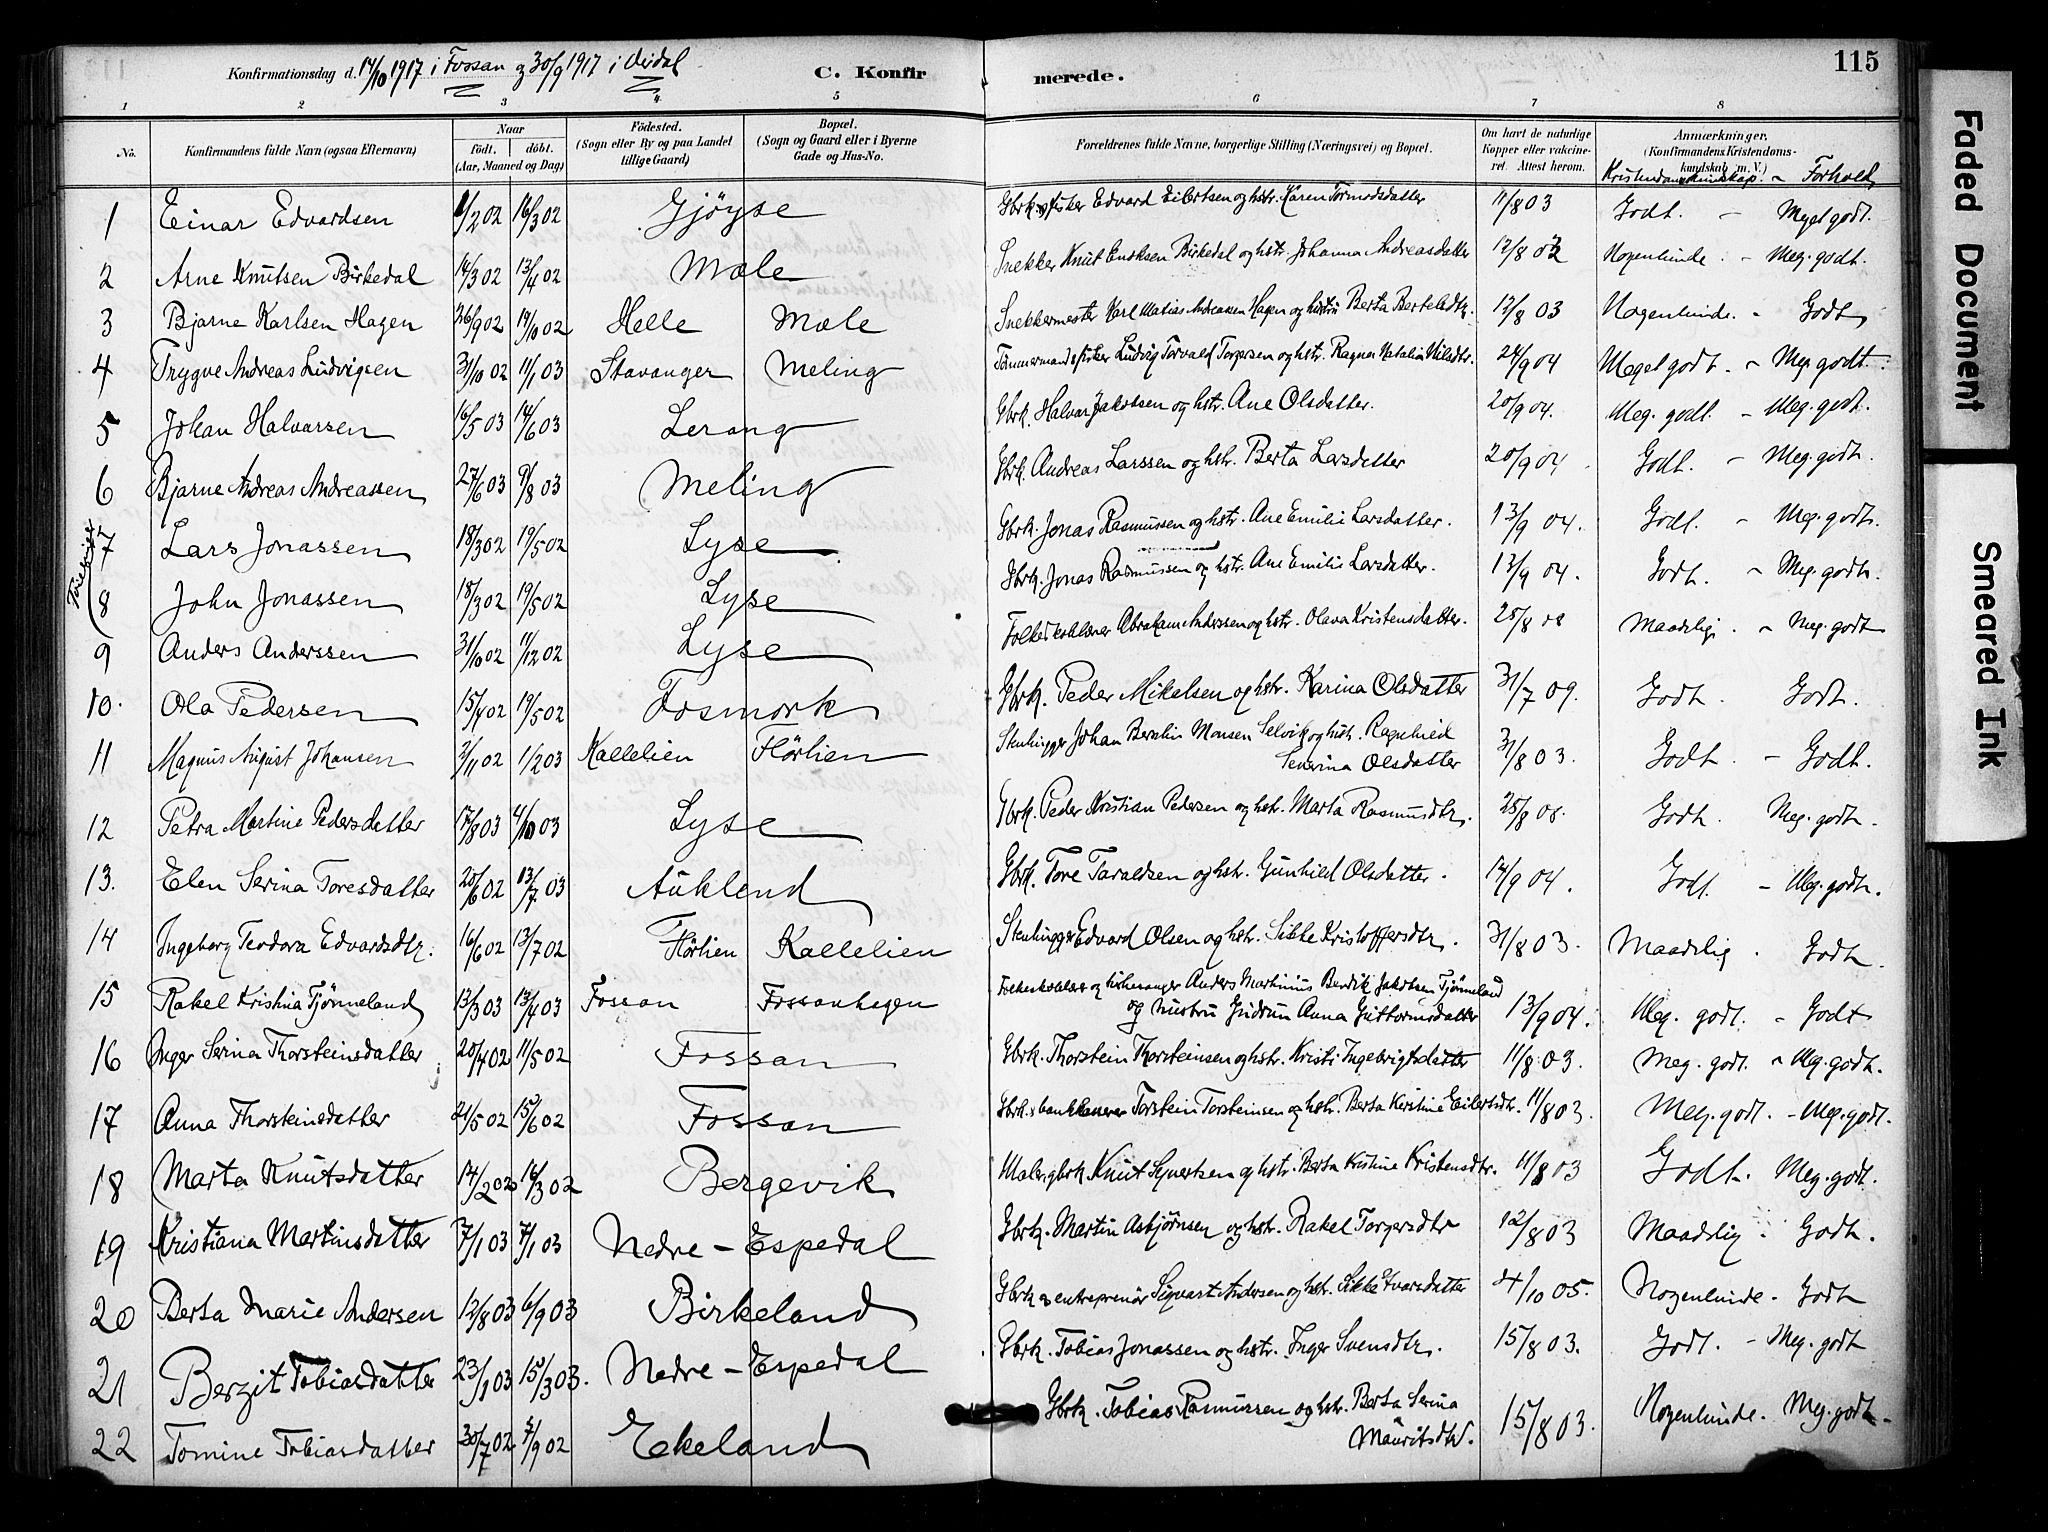 Konfirmationsdag d. 14/10 1917 i Fossan og 30/9 1917 i
C. Konfir merede. 115
1 2 3 4 5 6 7 8
No. Konfirmandens fulde Navn (ogsaa Efternavn) Naar födt. döbt. (Aar, Maaned og Dag) Födested. (Sogn eller By og paa Landet tillige Gaard) Bopæl. (Sogn og Gaard eller i Byerne Gade og Hus-No. Forældrenes fulde Navne, borgerlige Stilling (Næringsvei) og Bopæl. Om havt de naturlige Kopper eller vakcineret. Attest herom. Anmærkninger. (Konfirmandens Kristendomskundskab m. V.) Kristendomskundskap. - Forhold
1 Einar Edvardsen 6/2 02 16/3 02 Gjöyse Gbrk. fisker Edvard Eilertsen og hstr. Karen Tormodsdatter 11/8 03 Godt. - Meget godt.
2 Arne Knutsen Birkedal 14/3 02 13/4 02 Mæle Snekker Knut Enoksen Birkedal og hstr. Johanna Andreasdatter 12/8 02 Nogenlunde. - Meg. godt.
3 Bjarne Karlsen Hagen 26/9 02 19/10 02 Helle Mæle Snekkermester Karl Matias Andreasen Hagen og hustru Berta Berteldtr. 12/8 03 Nogenlunde. - Godt
4 Trygve Andreas Ludvigsen 31/10 02 11/1 03 Stavanger Meling Tömmermand fisker Ludvig Torvald Torgersen og hstr. Ragna Natalia Nilsdtr. 24/9 04 Meget godt. - Meg. godt.
5 Johan Halvarsen 16/5 03 14/6 03 Lerang Gbrk. Halvar Jakobsen og hstr. Ane Olsdatter. 20/9 04. Meg. godt. - Meg. godt.
6 Bjarne Andreas Andreassen 27/6 03 9/8 03 Meling Gbrk. Andreas Larssen og hstr. Berta Larsdatter 20/9 04 Godt. - Meg. godt.
7 Lars Jonassen 18/3 02 19/5 02 Lyse Gbrk. Jonas Rasmussen og hstr. Ane Emilie Larsdatter. 13/9 04. Godt. - Meg. godt.
8 John Jonassen 18/3 02 19/5 02 Lyse Gbrk. Jonas Rasmussen og hstr. Ane Emilie Larsdatter. 13/9 04. Godt. - Meg. godt.
9 Anders Anderssen 31/10 02 11/12 02 Lyse Folkeskolelærer Abraham Anderssen og hstr. Olava Kristensdatter. 25/8 08 Maadelig. - Meg. godt
10. Ola Pedersen 15/4 02 19/5 02 Fosmork Gbrk. Peder Mikelsen og hstr. Karina Olsdatter 31/7 09. Godt. Godt.
11 Magnus August Johansen 2/11 02 1/2 03 Kallelien Flörlien Stenhugger Johan Berntin Monsen Selvik og hstr. Ragnhild
Severina Olsdatter 31/8 03. Godt. - Godt.
12 Petra Martine Pedersdatter 17/8 03 4/10 03 Lyse Gbrk. Peder Kristian Pedersen og hstr. Marta Rasmusdtr. 25/8 08. Godt. Meg. godt.
13. Elen Serina Toresdatter 20/6 02 13/7 03 Aukland Gbrk. Tore Taraldsen og hstr. Gunhild Olsdatter. 14/9 04. Godt. - Meg. godt.
14 Ingeborg Teodora Edvardsdtr. 16/6 02 13/7 02 Flörlien Kallelien Stenhugger Edvard Olsen og hstr. Sikke Kristoffersdtr. 31/8 03. Maadelig. Godt.
15 Rakel Kristina Tjönneland 13/3 03 13/4 03 Fossan Fossanhagen Folkeskolelærer og kirkesanger Anders Martinius Bendik Jakobsen Tjönneland
og hustru Gudrun Anna Guttormsdatter 13/9 04. Meg. godt. - Godt
16 Inger Serina Thorsteinsdatter 20/4 02 11/5 02 Fossan Gbrk. Thorstein Thorsteinsen og hstr. Kristi Ingebrigtsdatter 11/8 03. Meg. godt. - Meg. godt.
17 Anna Thorsteinsdatter 21/5 02 15/6 02 Fossan Gbrk. & bankkasserer Torstein Torsteinsen og hstr. Berta Kristine Eilertsdtr. 11/8 03. Meg. godt. - Meg. godt.
18 Marta Knutsdatter 14/2 02 16/3 02 Bergevik Maler, gbrk. Knut Syvertsen og hstr. Berta Kristine Kristensdtr. 11/8 03 Godt. Meg. godt.
19 Kristiana Martinsdatter 7/1 03 7/1 03 Nedre - Espedal Gbrk. Martin Asbjörnsen og hstr. Rakel Torgersdtr 12/8 03 Maadelig. Godt.
20 Berta Marie Andersen 12/8 03 6/9 03 Birkeland Gbrk & entreprenör Sigvart Andersen og hstr. Sikke Evarsdatter 4/10 05. Nogenlunde. Godt
21 Bergit Tobiasdatter 23/1 03 15/3 03. Nedre - Espedal Gbrk. Tobias Jonassen og hstr. Inger Svensdtr. 15/8 03. Godt. - Meg. godt
22 Tomine Tobiasdatter 30/7 02 7/9 02 Ekeland Gbrk. Tobias Rasmussen og hstr. Berta Serina
Mauritsdtr. 15/8 03. Nogenlunde. Meg. godt.
Faded Document
Smeared Ink